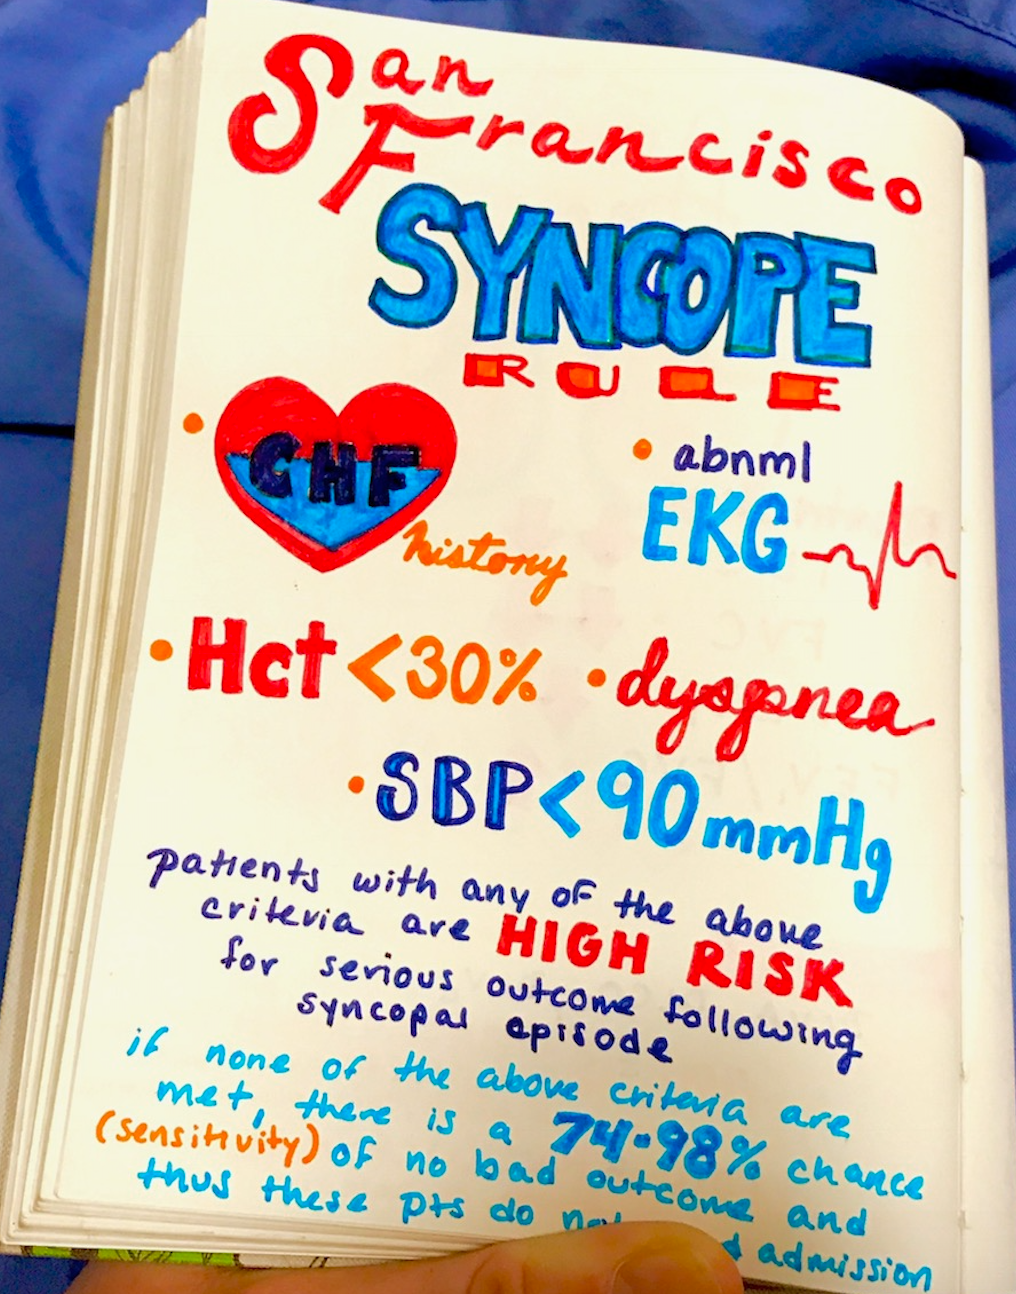 San
Francisco
SYNCOPE
RULE
• CHF
history
• abnml
EKG
• Hct <30%
• dyspnea
• SBP <90 mmHg
patients with any of the above
criteria are HIGH RISK
for serious outcome following
syncopal episode
if none of the above criteria are
met, there is a 74-98% chance
(sensitivity) of no bad outcome and
thus these pts do admission